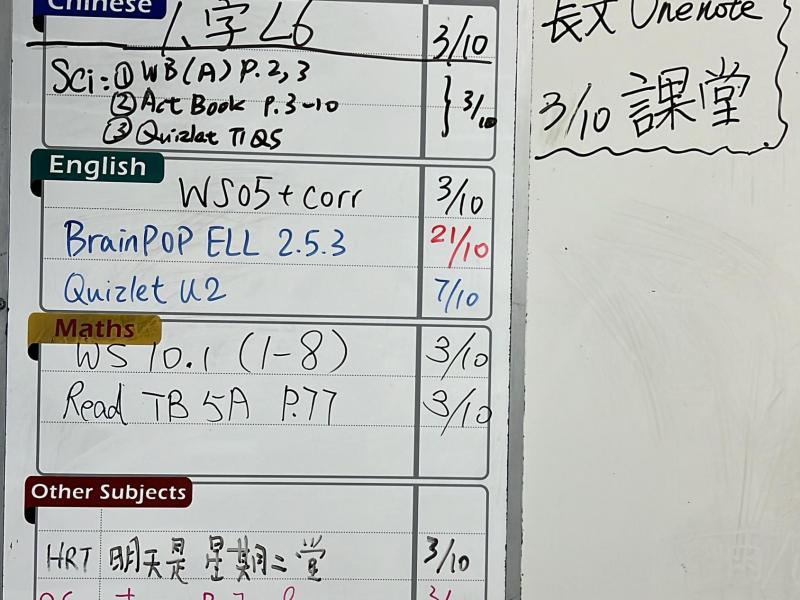 Chinese
字 L6 3/10
Sci: ① WB(A) P.2,3
② Act Book P.3-10 } 3/10
③ Quizlet T1Q5
English
WS05+corr 3/10
BrainPOP ELL 2.5.3 21/10
Quizlet U2 7/10
Maths
WS 10.1 (1-8) 3/10
Read TB 5A P.77 3/10
Other Subjects
HRT 明天是星期二堂 3/10
長文 Onenote
3/10 課堂